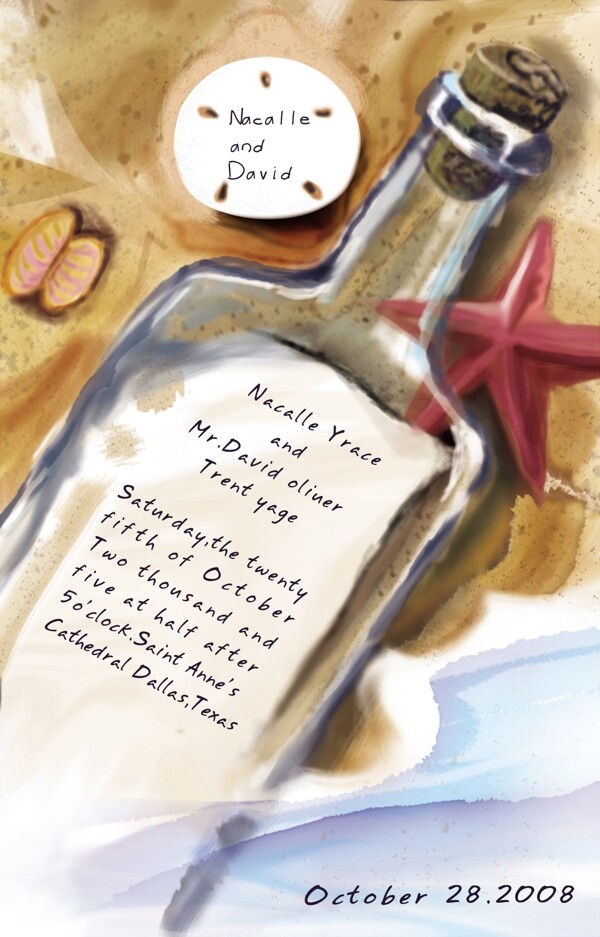 Nacalle
and
David
Nacalle Yrace
and
Mr.David oliuer
Trent yage
Saturday,the twenty
fifth of October
Two thousand and
five at half after
5o'clock.Saint Anne's
Cathedral Dallas,Texas
October 28.2008